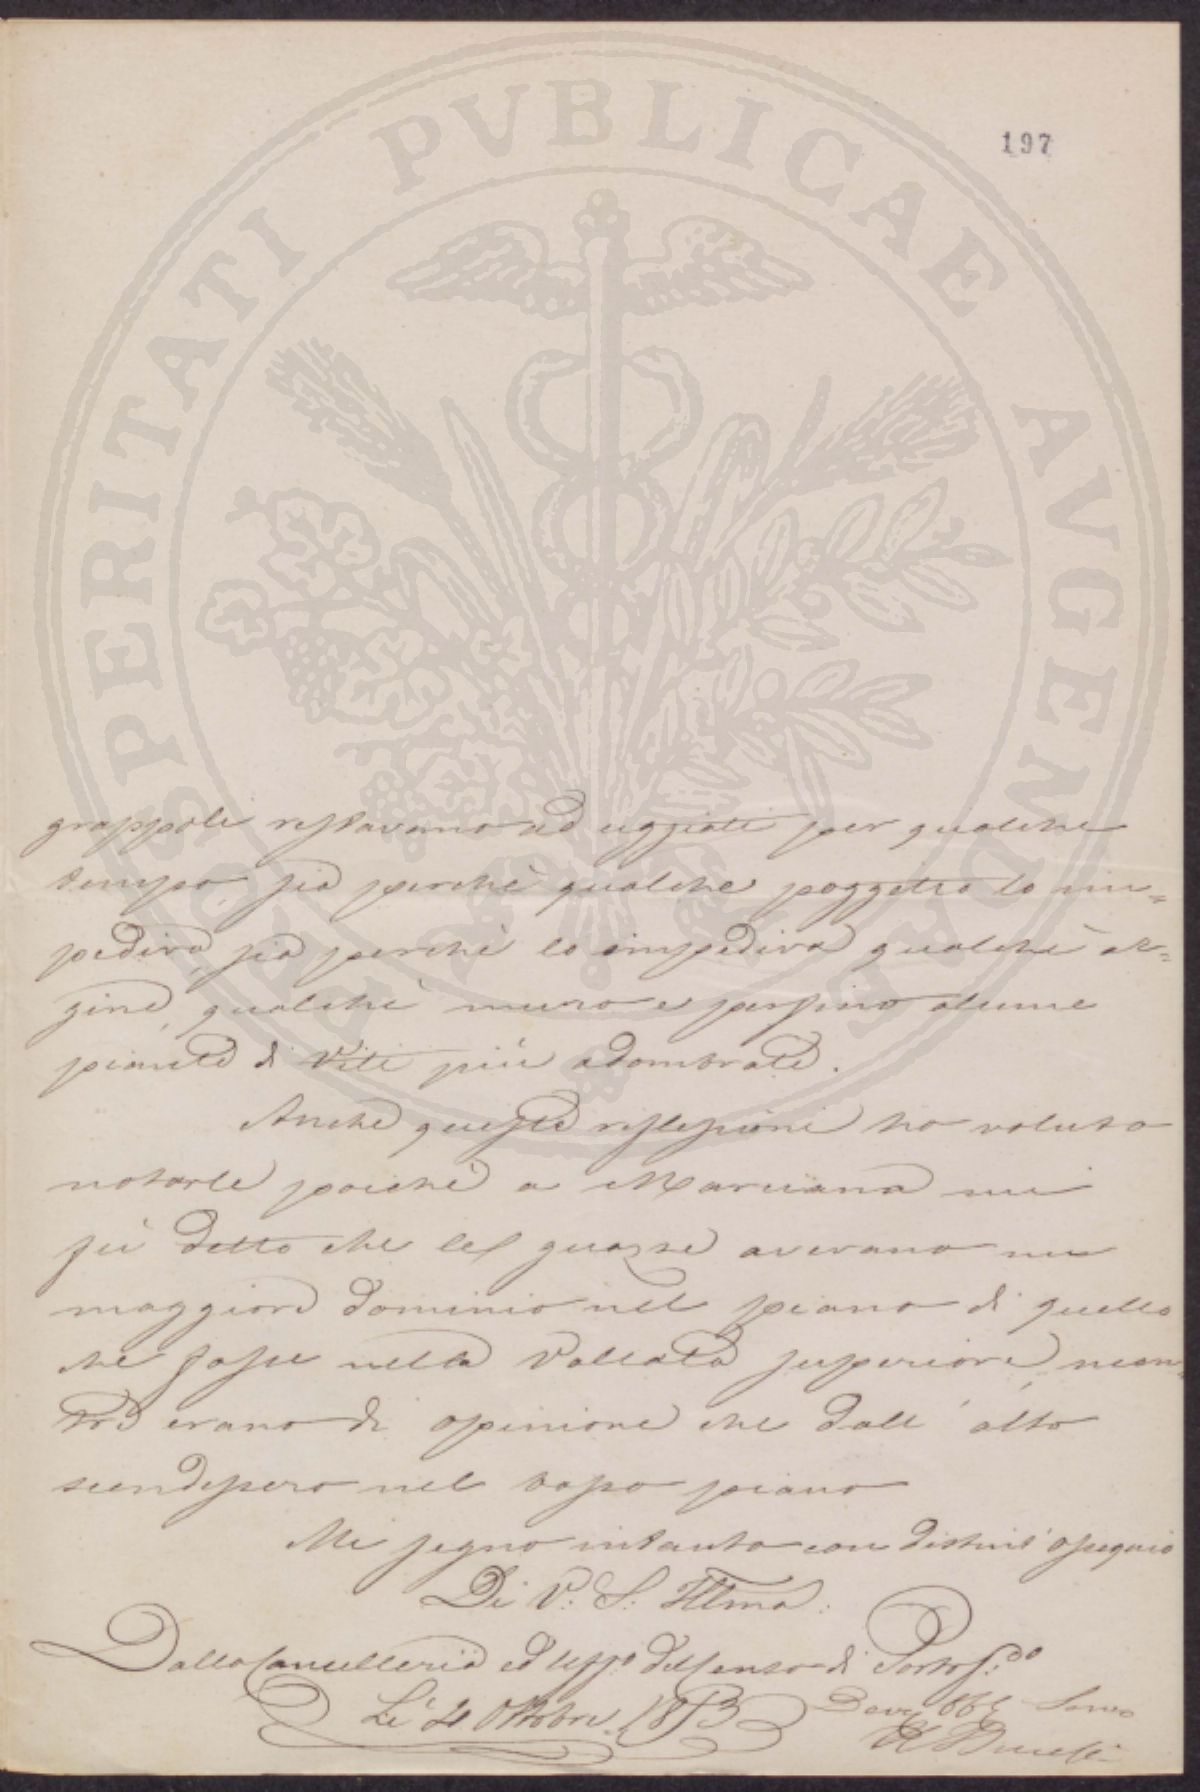 197
grappoli restavano ad uggiati per qualche
tempo sia perchè qualche poggetto lo im=
pediva, sia perchè lo impediva qualche ar=
gine, qualche muro e persino alcune
piante di Viti più adombrate.
Anche queste reflessioni ho voluto
notarle poichè a Marciana mi
fù detto che le guazze avevano un
maggiore dominio nel piano di quello
che fosse nella Vallata superiore, men=
tre erano di opinione che dall'alto
scendessero nel basso piano
Mi segno intanto con distint' ossequio
Di V: S: Illma:
Dalla Cancelleria ed Uffo. del Censo di Portof:do
Li 21 Ottobre 1853
Devo Obb Servo
PROSPERITATI PVBLICAE AVGENDAE